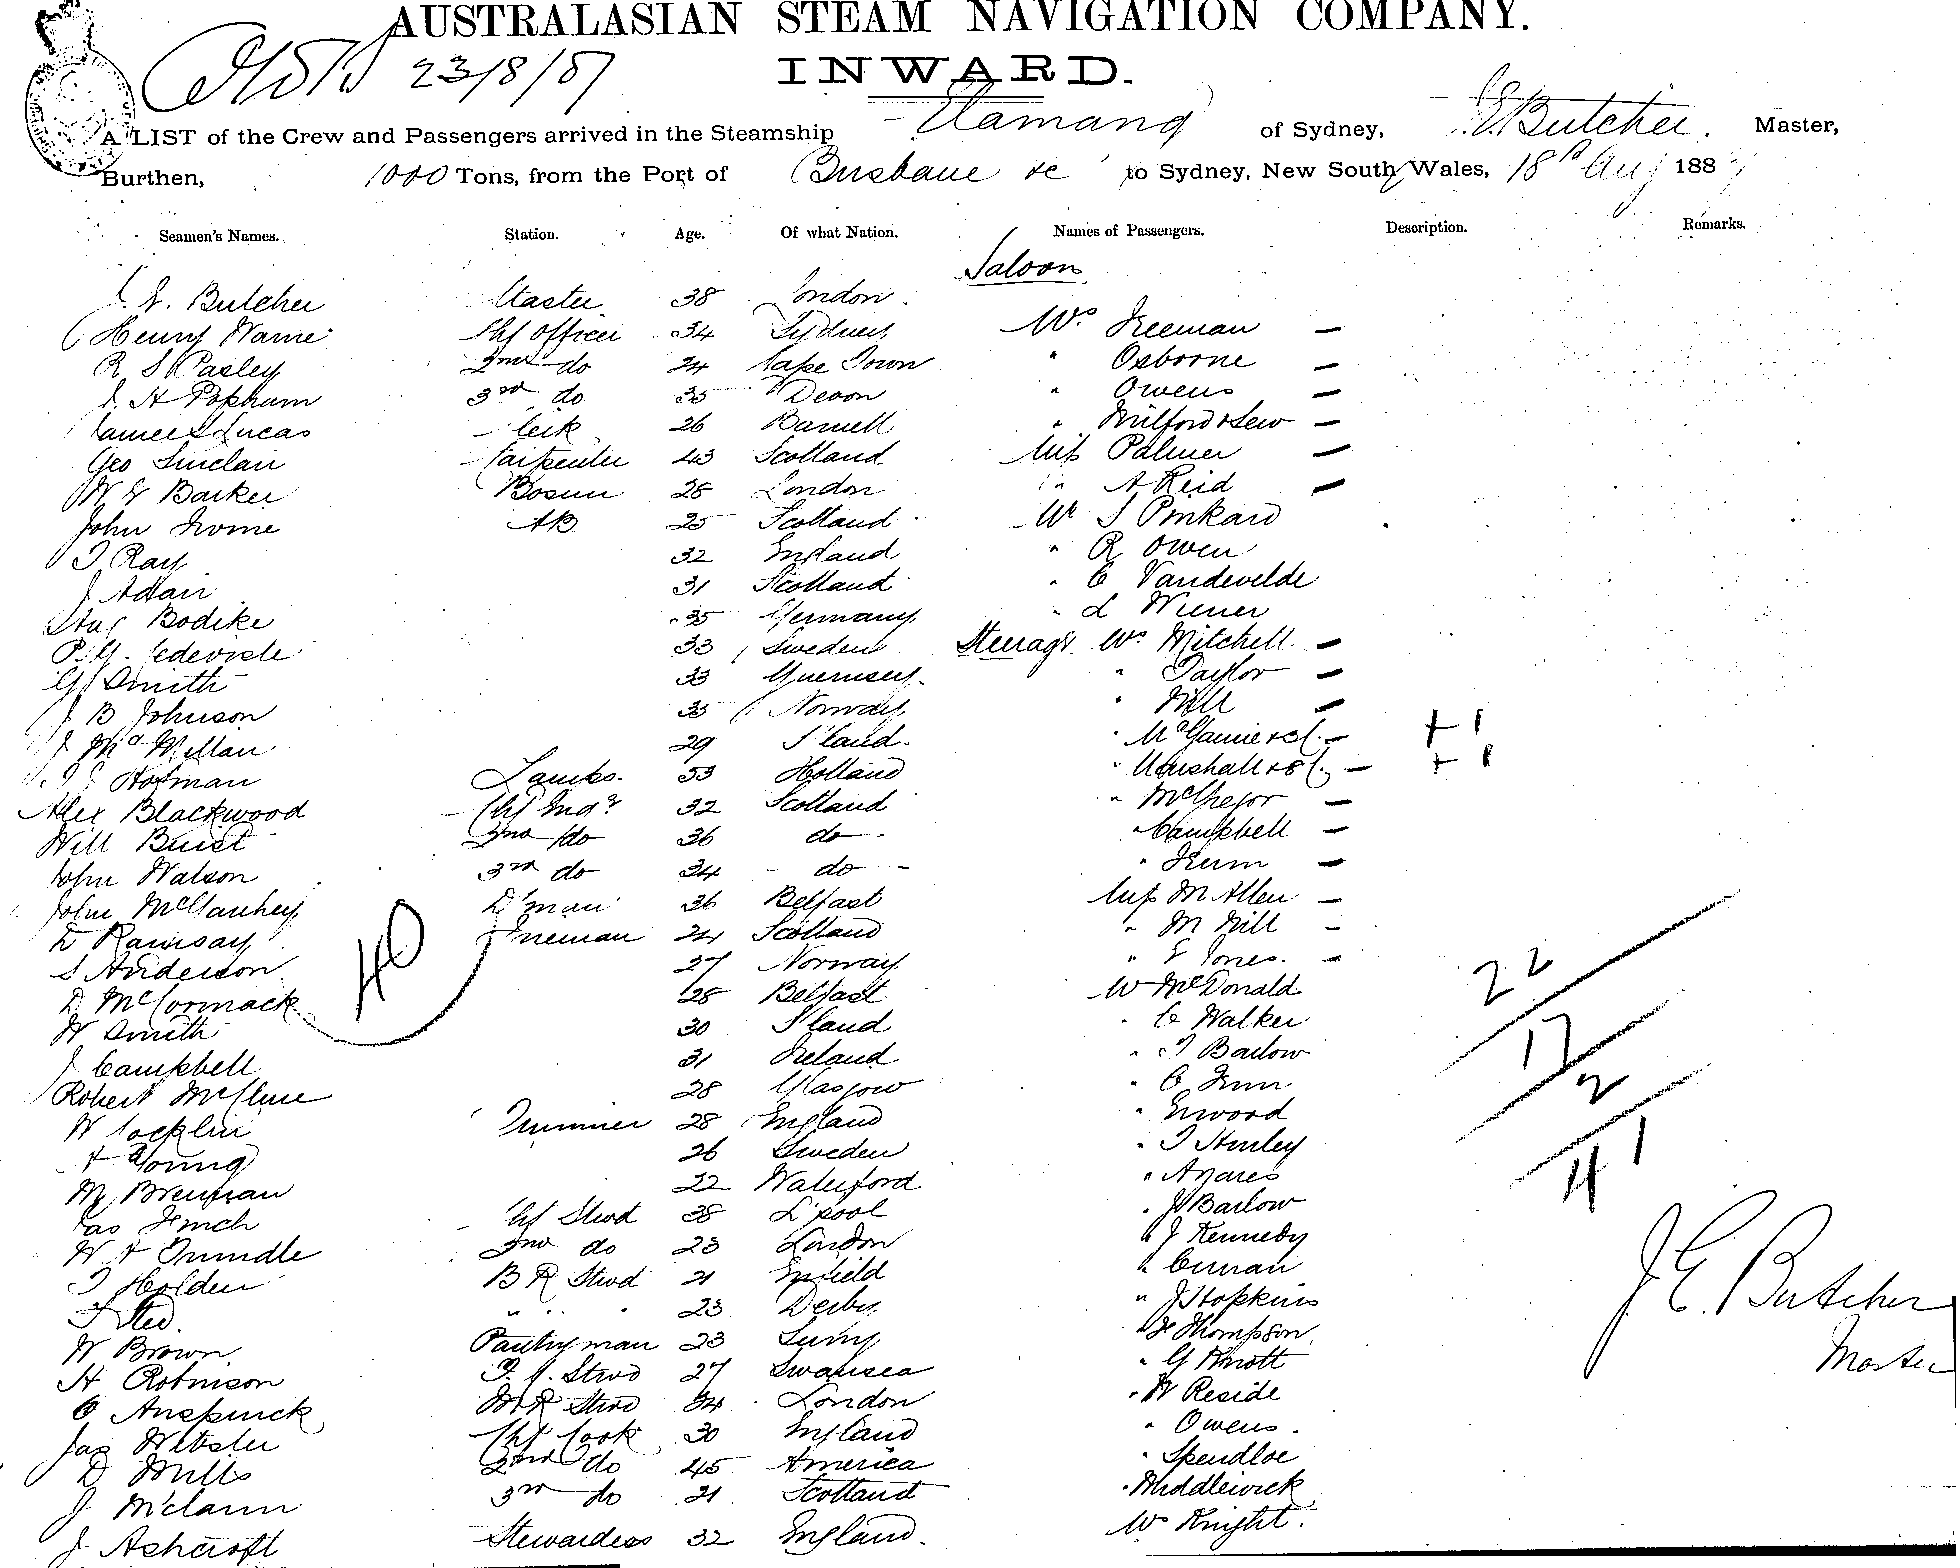 AUSTRALASIAN STEAM NAVIGATION COMPANY.
23/8/87
INWARD.
A LIST of the Crew and Passengers arrived in the Steamship Elamang of Sydney, J.E. Butcher. Master,
Burthen, 1000 Tons, from the Port of Brisbane &c to Sydney, New South Wales, 18th Aug 1887
Seamen's Names. Station. Age. Of what Nation. Names of Passengers. Description. Remarks.
Saloon
J E. Butcher Master 38 London
Henry Warne Chf Officer 34 Sydney Mrs Freeman —
R S Pasley 2nd do 24 Cape Town " Osborne —
J. H Popham 3rd do 35 Devon " Owens —
James S Lucas Clerk 26 " Milford & Serv —
Geo Sinclair Carpenter 43 Scotland Miss Palmer —
W. G Barker Bosun 28 London " A Reid —
John Irvine AB 25 Scotland Mr S Pinkard
T Ray 32 England " R Owen
J Adair 31 Scotland " C Vandevelde
Aug Bodike 35 Germany " L Wiener
33 Sweden Steerage Mrs Mitchell —
G Smith 33 Guernsey " Taylor —
J B Johnson 35 Norway " Hill —
J McMillan 29 S'land " & C. — + 1
Hofman Lamps. 53 Holland " Marshall & C. — + 1
Alex Blackwood Chf Engr 32 Scotland " McGregor —
Will Buist 2nd do 36 do " Campbell —
John Watson 3rd do 34 do " —
John McClauhey D'man 36 Belfast Miss M Allen —
D Ramsay Fireman 24 Scotland " M Hill —
S Anderson 27 Norway " E Jones. —
D McCormack 28 Belfast Mr McDonald
W Smith 30 S'land " C Walker
J Campbell 31 Ireland " T Barlow
Robert McClure 28 Glasgow " C
W Cocklin Trimmer 28 England " Enwood
A Young 26 Sweden " T Hurley
M Brennan 22 Waterford " Anares
Jas Finch Chf Stwd 38 L'pool " J Barlow
W A Trundle 2nd do 23 London " J Kennedy
T Holden B R Stwd 21 Enfield " Curran
" " " 23 Derby " J Hopkins
W Brown Pantryman 23 Surry " H Thompson
H Robinson F. C. Stwd 27 Swansea " G Knott
C Anspinck M R Stwd 34 London " W Reside
Jas Webster Chf Cook 30 England " Owens.
D Mills 2nd do 45 America " Spendloe
J McLaren 3rd do 21 Scotland " Middlewick
J Ashcroft Stewardess 32 England. Mr Knight.
40
22
17
2
41
J. E. Butcher
Master